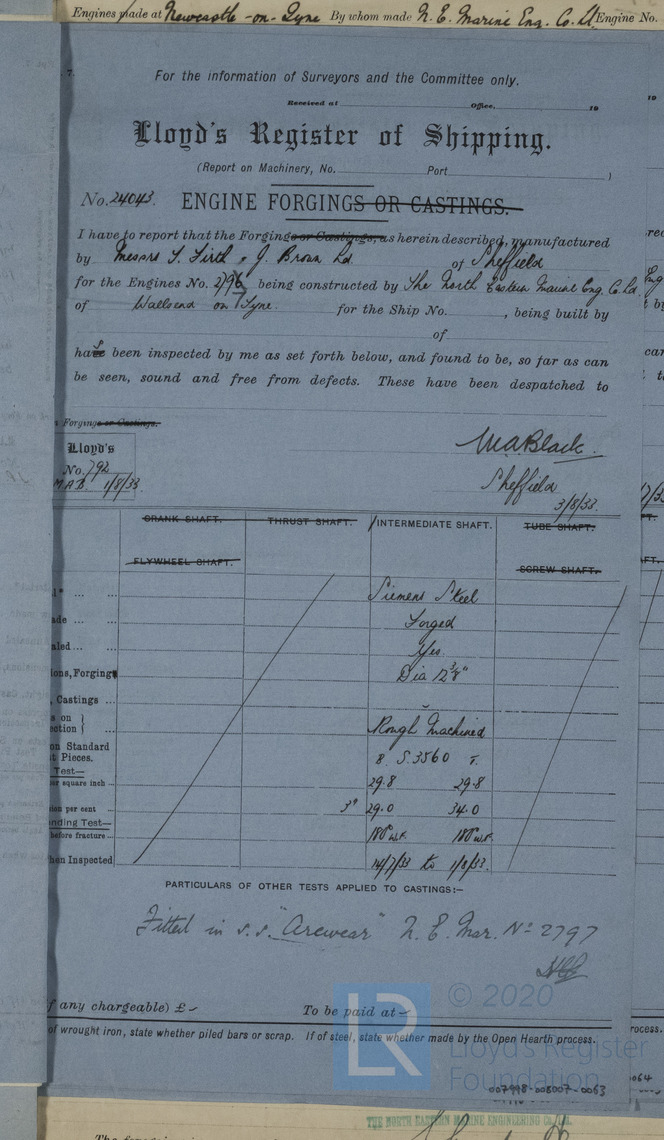 Engines made at Newcastle-on-Tyne By whom made N. E. Marine Eng. Co. Ld Engine No.
7.
For the information of Surveyors and the Committee only.
Received at Office, 19
Lloyd's Register of Shipping.
(Report on Machinery, No. Port )
No. 24043. ENGINE FORGINGS OR CASTINGS.
I have to report that the Forgings or Castings, as herein described, manufactured
by Messrs T. Firth & J. Brown Ld of Sheffield
for the Engines No. being constructed by The North Eastern Marine Eng. Co. Ld.
of Wallsend on Tyne. for the Ship No. , being built by
of
been inspected by me as set forth below, and found to be, so far as can
be seen, sound and free from defects. These have been despatched to
Forgings or Castings.
Lloyd's
No. 792
M.A.B. 1/8/33.
M A Black.
Sheffield
3/8/33.
CRANK SHAFT. THRUST SHAFT. INTERMEDIATE SHAFT. TUBE SHAFT.
FLYWHEEL SHAFT. SCREW SHAFT.
Siemens Steel
Forged
Yes
ons, Forgings Dia 12 3/8"
, Castings ...
s on
ection Rough Machined
on Standard
t Pieces. 8 S.3560 T.
Test—
er square inch 29.8 29.8
ion per cent 3" 29.0 34.0
nding Test—
before fracture 180° u.f. 180° u.f.
hen Inspected 14/7/33 to 1/8/33.
PARTICULARS OF OTHER TESTS APPLIED TO CASTINGS:—
Fitted in s.s. "Arcwear" N. E. Mar. No 2797
f any chargeable) £ To be paid at
of wrought iron, state whether piled bars or scrap. If of steel, state whether made by the Open Hearth process.
LR © 2020
Lloyd's Register
Foundation
007998-008007-0063
THE NORTH EASTERN MARINE ENGINEERING Co., Ld.